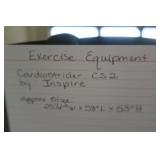 Exercise Equipment
Cardiostrider CS2
by Inspire
Approx Size
25¼" W x 58" L x 53" H